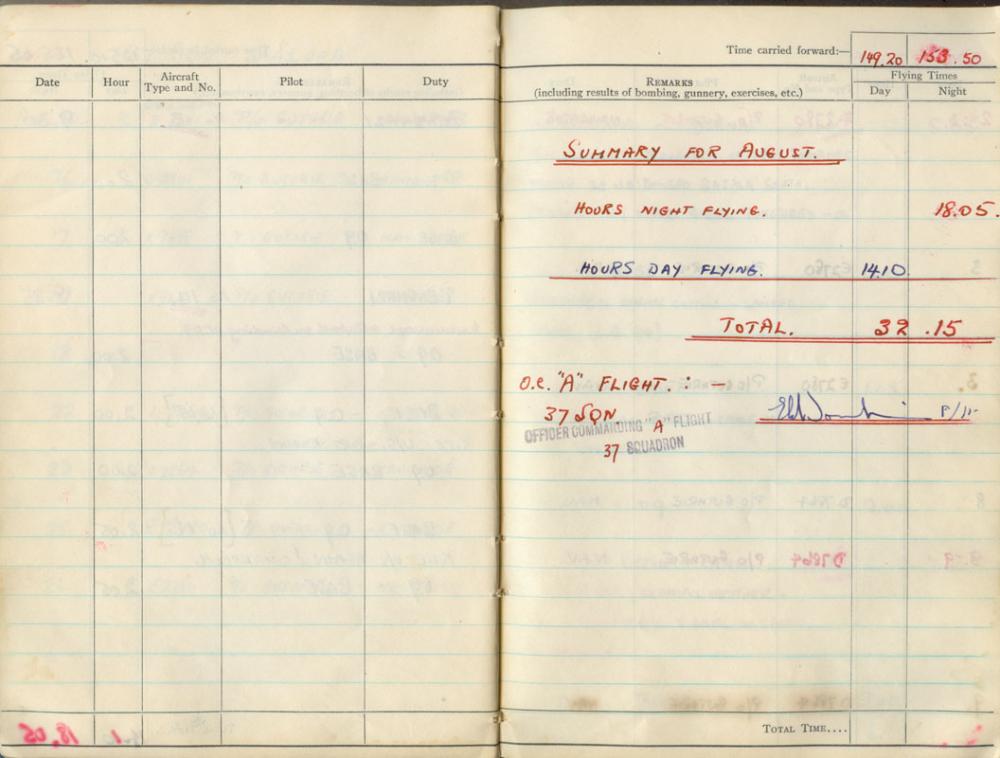 Date Hour Aircraft Type and No. Pilot Duty
Time carried forward:— 149.20 153.50
REMARKS
(including results of bombing, gunnery, exercises, etc.)
Flying Times
Day Night
SUMMARY FOR AUGUST.
HOURS NIGHT FLYING. 18.05.
HOURS DAY FLYING. 14.10.
TOTAL. 32.15
O.C. "A" FLIGHT. : —
37 SQN
OFFICER COMMANDING "A" FLIGHT
37 SQUADRON
TOTAL TIME....